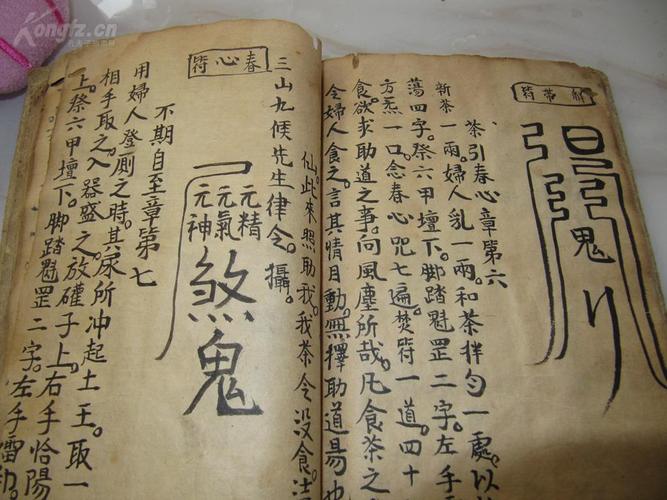 Kongfz.cn
解帶符
茶引春心章第六
新茶一兩。婦人乳一兩。和茶拌勻一處。以
蕩四字。祭六甲壇下。脚踏魁罡二字。左手
方炁一口。念春心咒七遍。焚符一道。四十
食欲求助道之事。向風塵所哉。凡食茶之
令婦人食之。言其情目動。無擇助道易也
仙此來照助我。我茶令没食
三山九候先生律令。攝。
春心符
元精
元氣
元神
煞鬼
不期自至章第七
用婦人登厠之時。其尿所冲起土王。取一
相手取之。入器盛之。放礶子上。右手恰陽
上。祭六甲壇下。脚踏魁罡二字。左手雷印